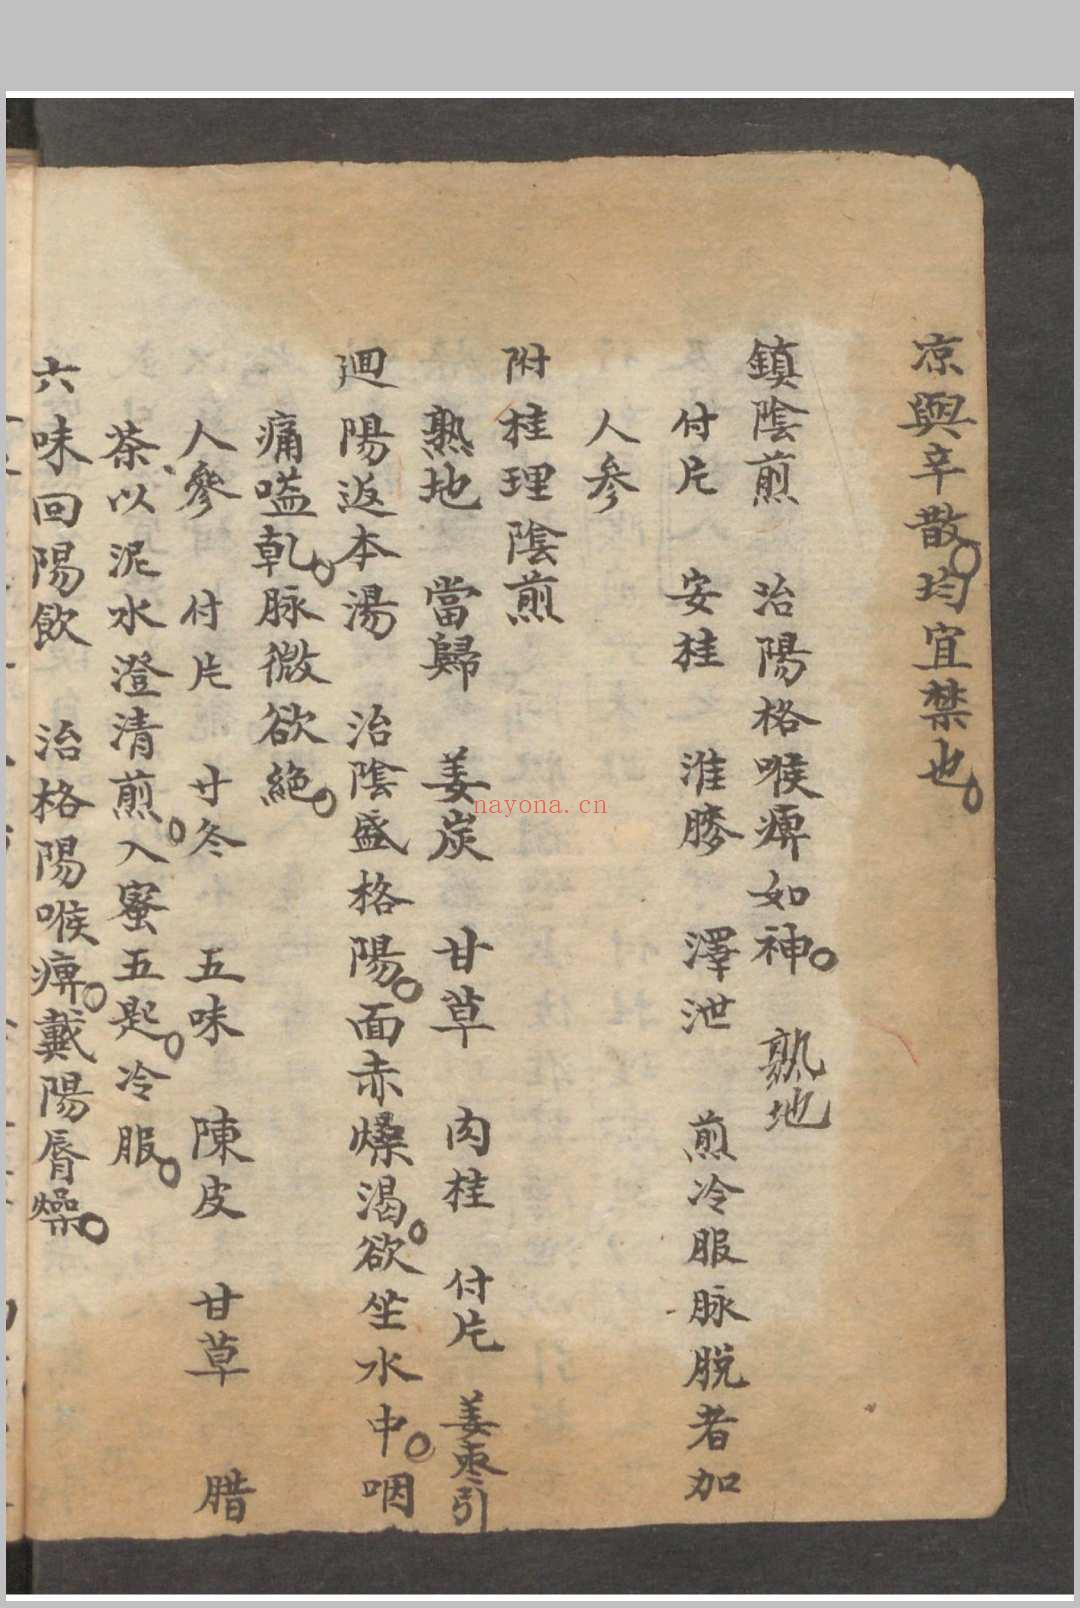 凉與辛散。均宜禁也。
鎮陰煎　治陽格喉痺如神。　熟地
付片　安桂　淮膝　澤泄　煎冷服脉脫者加
人參
附桂理陰煎
熟地　當歸　姜炭　甘草　肉桂　付片　姜枣引
廻陽返本湯　治陰盛格陽。面赤燥渴。欲坐水中。咽
痛嗌乾。脉微欲絕。
人參　付片　寸冬　五味　陳皮　甘草　腊
茶、以泥水澄清煎。入蜜五匙。冷服。
六味回陽飲　治格陽喉痺。戴陽唇燥。
nayona.cn